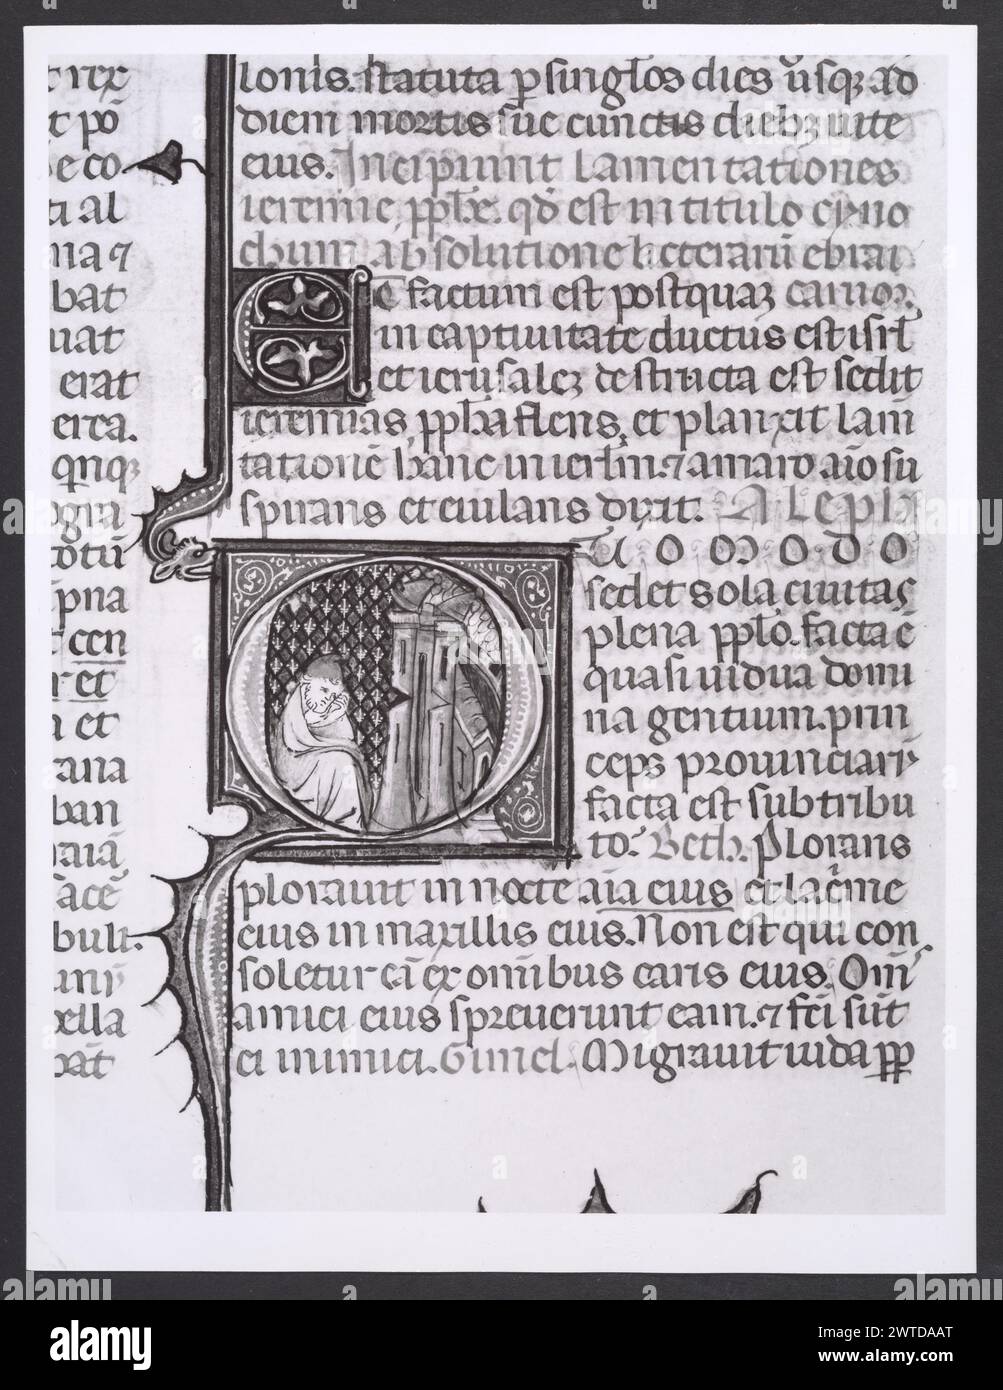 t rex
t pō
e co
ti al
ma ⁊
bat
uat
erat
erea.
qnqꝫ
ogra
totū
pna
t cen
r et
n et
rana
ban
raiā
ācē
bult.
unij
bella
bāt
lonis. statuta ꝑ singlos dies usqꝫ ad
diem mortis sue cunctis diebꝫ uite
eius. Incipiunt lamentationes
ieremie, ꝓphe. qd est in titulo cyno
chum absolutione licterarū ebrai
carnor.
Et factum est postquaꝫ
in captiuitate ductus est isrl
et ierusaleꝫ destructa est sedit
ieremias, ꝓpha flens, et planxit lam̄
tationē hanc in ierl̄m. ⁊ amaro aīo su
spirans et eiulans dixit. Aleph
Quomodo
sedet sola ciuitas
plena ppl̄o. facta ē
quasi uidua domi
na gentium. prin
ceps prouinciarꝝ
facta est sub tribu
to. Beth. Plorans
plorauit in nocte aīa eius et lac̄me
eius in maxillis eius. Non est qui con
soletur eā ex omībus caris eius. Om̄
amici eius spreuerunt eam. ⁊ fc̄i sūt
ei inimici. Gimel. Migrauit iuda ꝓp
a
alamy
alamy
Image ID: 2WTDAAT
www.alamy.com